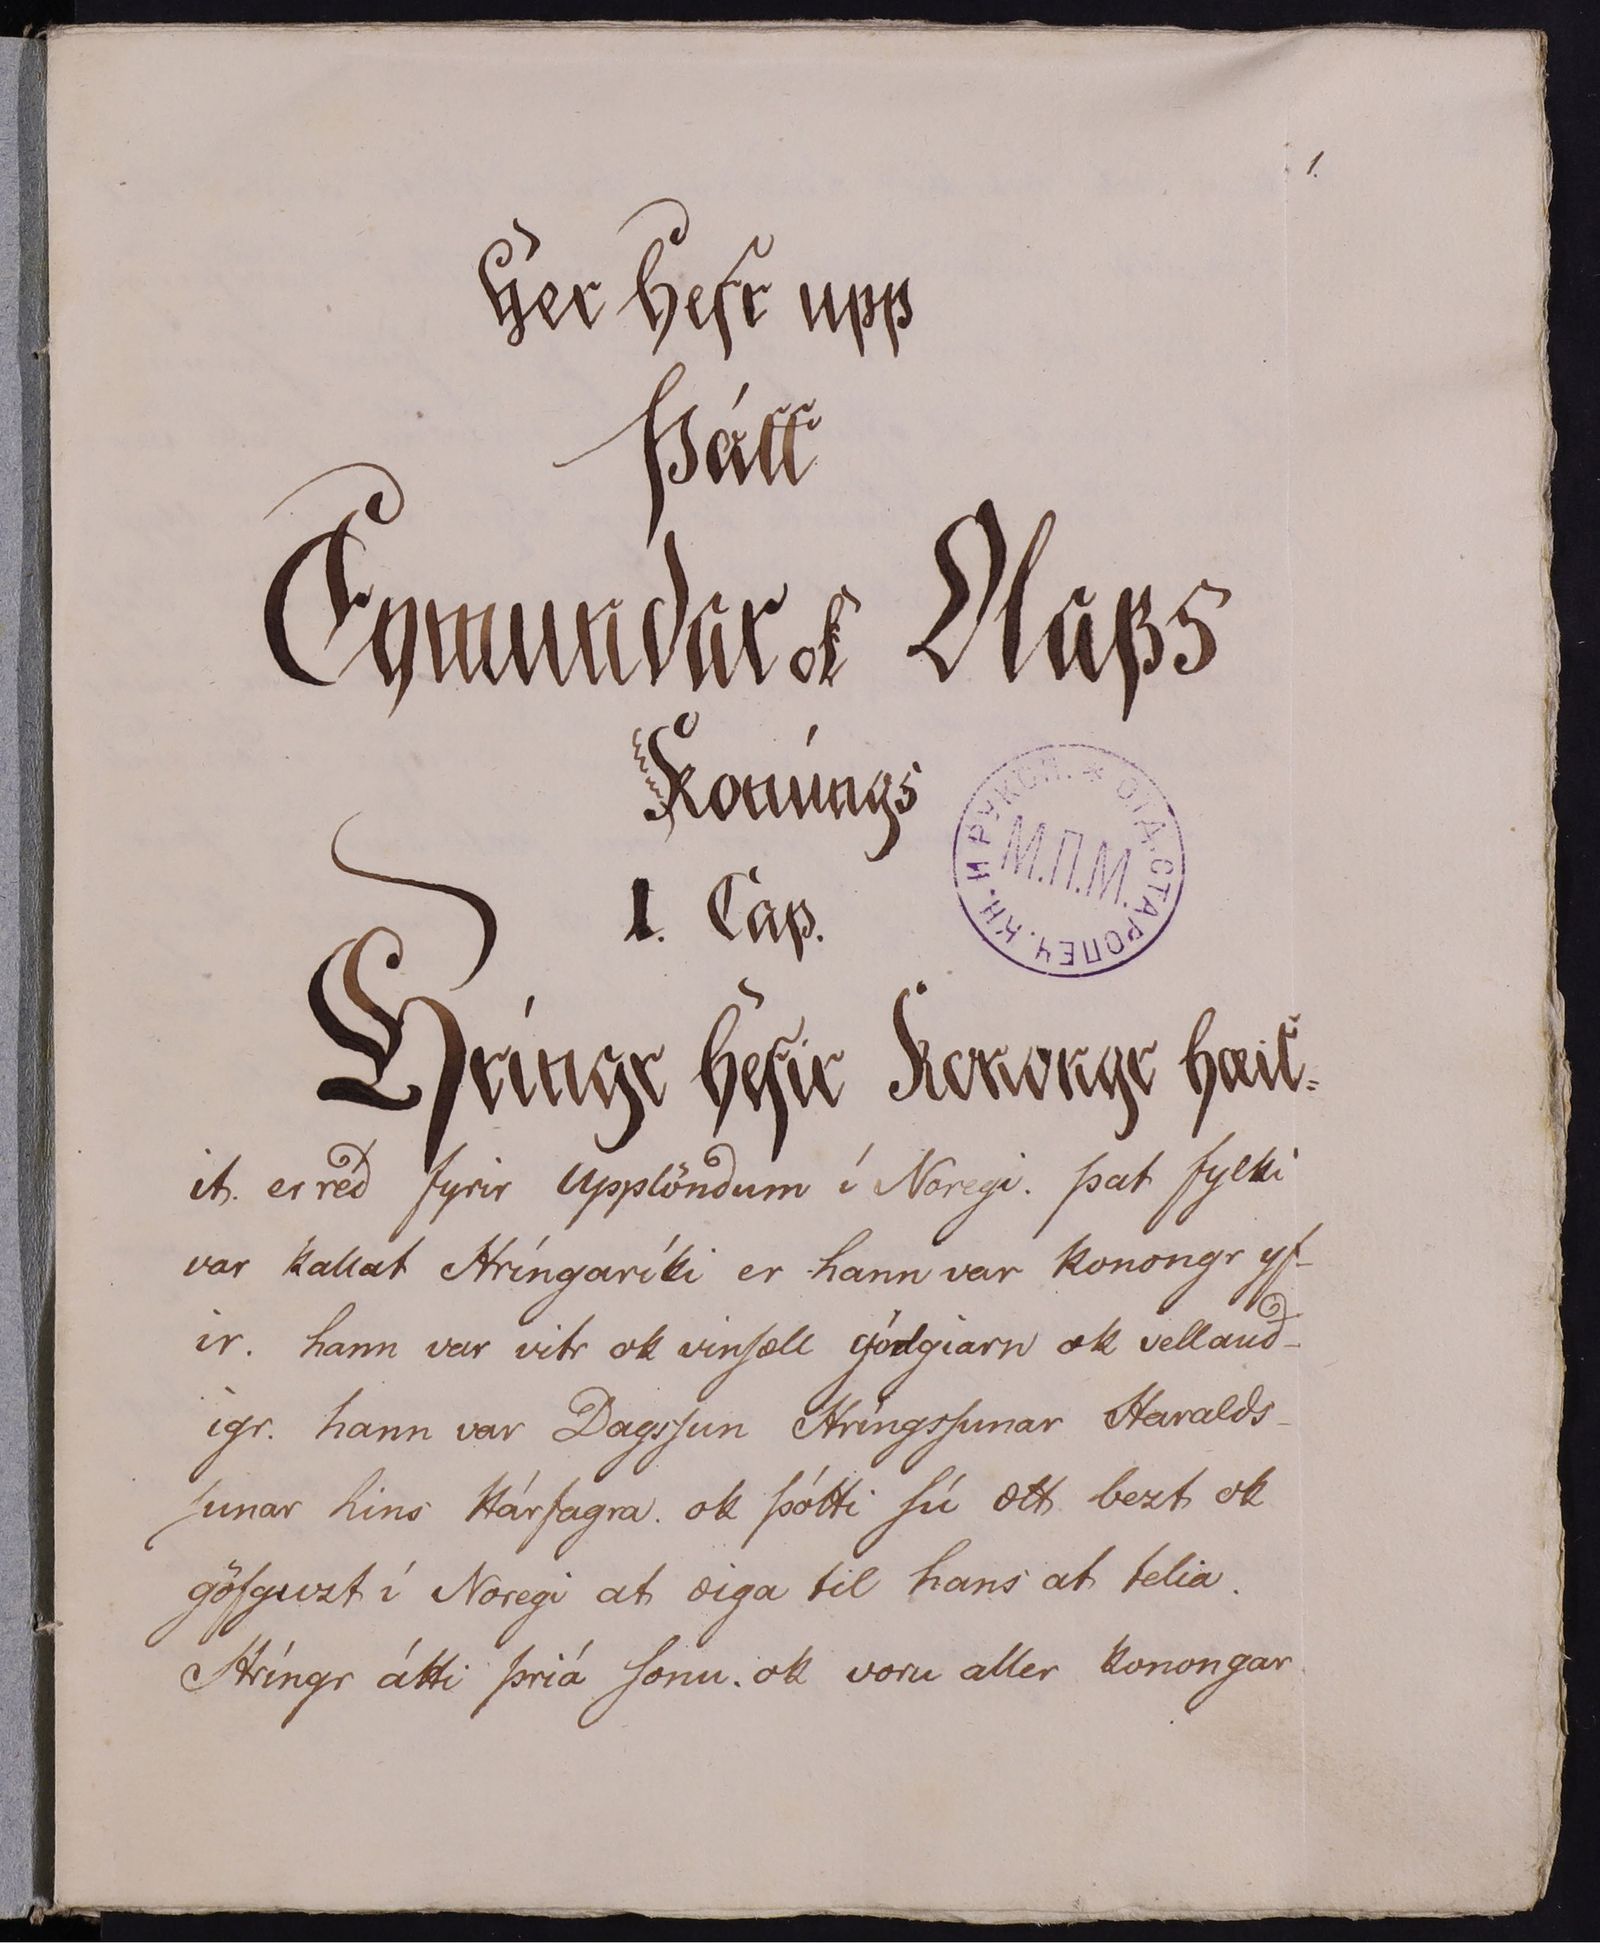 1.
Her hefr upp
Þátt
Eymundar ok Olafs
Konúngs
ОТД. СТАРОПЕЧ. КН. И РУКОП. *
М.П.М.
1. Cap.
Hríngr hefir Konongr hæit-
it. er réð fyrir Upplöndum í Noregi. þat fylki
var kallat Hríngaríki er hann var konongr yf-
ir. hann var vitr ok vinſæll góðgiarn ok vellauð-
igr. hann var Dagsſun Hríngsſunar Haralds-
ſunar hins Hárfagra. ok þótti ſú ætt bezt ok
göfguzt í Noregi at æiga til hans at telia.
Hríngr átti þriá ſonu. ok voru aller konongar